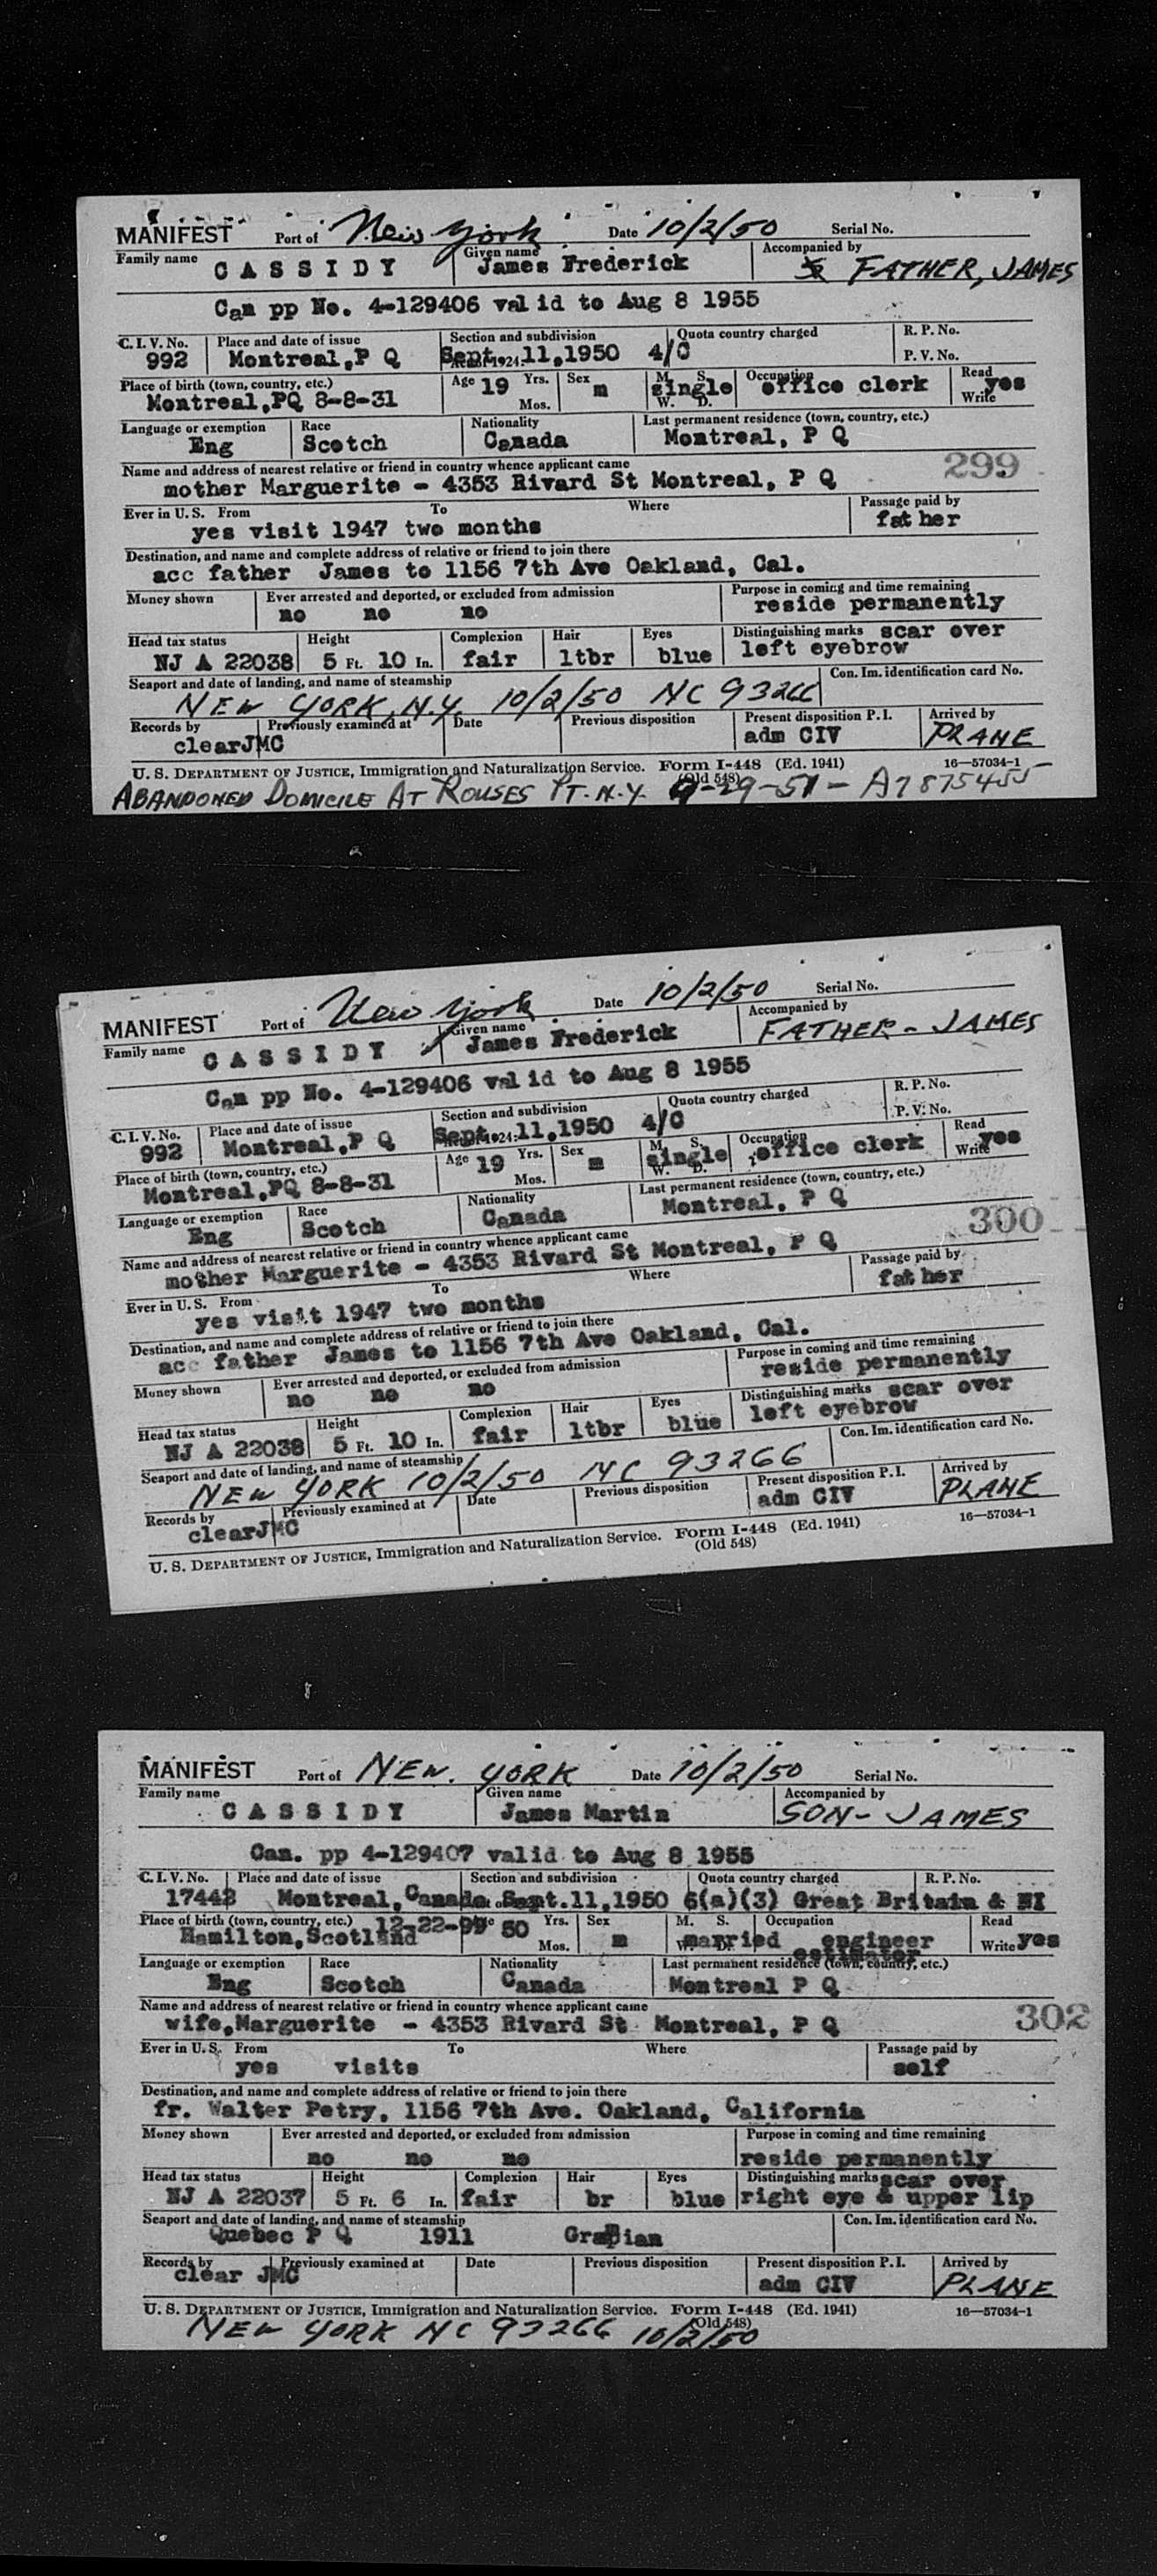 MANIFEST Port of New York Date 10/2/50 Serial No.
Family name CASSIDY Given name James Frederick Accompanied by FATHER, JAMES
Can pp No. 4-129406 valid to Aug 8 1955
C. I. V. No. Place and date of issue Section and subdivision Quota country charged R. P. No.
992 Montreal,P Q Sept. 11,1950 4/C P. V. No.
Place of birth (town, country, etc.) Age 19 Yrs. Sex M. S. Occupation Read
Montreal,PQ 8-8-31 Mos. m single W. D. office clerk Write yes
Language or exemption Race Nationality Last permanent residence (town, country, etc.)
Eng Scotch Canada Montreal, P Q
Name and address of nearest relative or friend in country whence applicant came 299
mother Marguerite - 4353 Rivard St Montreal, P Q
Ever in U. S. From To Where Passage paid by
yes visit 1947 two months father
Destination, and name and complete address of relative or friend to join there
acc father James to 1156 7th Ave Oakland, Cal.
Money shown Ever arrested and deported, or excluded from admission Purpose in coming and time remaining
no no no reside permanently
Head tax status Height Complexion Hair Eyes Distinguishing marks scar over
NJ A 22038 5 Ft. 10 In. fair ltbr blue left eyebrow
Seaport and date of landing, and name of steamship Con. Im. identification card No.
NEW YORK, N.Y. 10/2/50 NC 93266
Records by Previously examined at Date Previous disposition Present disposition P. I. Arrived by
clearJMC adm CIV PLANE
U. S. DEPARTMENT OF JUSTICE, Immigration and Naturalization Service. Form I-448 (Ed. 1941) 16—57034-1
(Old 548)
ABANDONED DOMICILE AT ROUSES PT. N.Y. 9-29-51 - A7875455
MANIFEST Port of New York Date 10/2/50 Serial No.
Family name CASSIDY Given name James Frederick Accompanied by FATHER - JAMES
Can pp No. 4-129406 valid to Aug 8 1955
C. I. V. No. Place and date of issue Section and subdivision Quota country charged R. P. No.
992 Montreal,P Q Sept. 11,1950 4/C P. V. No.
Place of birth (town, country, etc.) Age 19 Yrs. Sex M. S. Occupation Read
Montreal,PQ 8-8-31 Mos. m single W. D. office clerk Write yes
Language or exemption Race Nationality Last permanent residence (town, country, etc.)
Eng Scotch Canada Montreal, P Q
Name and address of nearest relative or friend in country whence applicant came 300
mother Marguerite - 4353 Rivard St Montreal, P Q
Ever in U. S. From To Where Passage paid by
yes visit 1947 two months father
Destination, and name and complete address of relative or friend to join there
acc father James to 1156 7th Ave Oakland, Cal.
Money shown Ever arrested and deported, or excluded from admission Purpose in coming and time remaining
no no no reside permanently
Head tax status Height Complexion Hair Eyes Distinguishing marks scar over
NJ A 22038 5 Ft. 10 In. fair ltbr blue left eyebrow
Seaport and date of landing, and name of steamship Con. Im. identification card No.
NEW YORK 10/2/50 NC 93266
Records by Previously examined at Date Previous disposition Present disposition P. I. Arrived by
clearJMC adm CIV PLANE
U. S. DEPARTMENT OF JUSTICE, Immigration and Naturalization Service. Form I-448 (Ed. 1941) 16—57034-1
(Old 548)
MANIFEST Port of NEW YORK Date 10/2/50 Serial No.
Family name CASSIDY Given name James Martin Accompanied by SON - JAMES
Can. pp 4-129407 valid to Aug 8 1955
C. I. V. No. Place and date of issue Section and subdivision Quota country charged R. P. No.
17442 Montreal,Canada Sept.11,1950 6(a)(3) Great Britain & NI
Place of birth (town, country, etc.) 12-22-99 50 Yrs. Sex M. S. Occupation Read
Hamilton,Scotland Mos. m married engineer Write yes
estimator
Language or exemption Race Nationality Last permanent residence (town, country, etc.)
Eng Scotch Canada Montreal P Q
Name and address of nearest relative or friend in country whence applicant came 302
wife,Marguerite - 4353 Rivard St Montreal, P Q
Ever in U. S. From To Where Passage paid by
yes visits self
Destination, and name and complete address of relative or friend to join there
fr. Walter Petry, 1156 7th Ave. Oakland, California
Money shown Ever arrested and deported, or excluded from admission Purpose in coming and time remaining
no no no reside permanently
Head tax status Height Complexion Hair Eyes Distinguishing marks scar over
NJ A 22037 5 Ft. 6 In. fair br blue right eye & upper lip
Seaport and date of landing, and name of steamship Con. Im. identification card No.
Quebec P Q 1911
Records by Previously examined at Date Previous disposition Present disposition P. I. Arrived by
clear JMC adm CIV PLANE
U. S. DEPARTMENT OF JUSTICE, Immigration and Naturalization Service. Form I-448 (Ed. 1941) 16—57034-1
(Old 548)
NEW YORK NC 93266 10/2/50